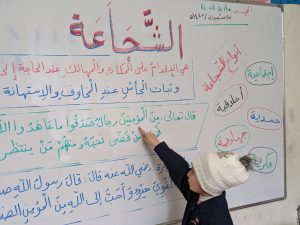 الشَّجَاعَة
هي الإقدام على المكاره والمهالك عند الحاجة إلى
وثبات الجأش عند المخاوف والاستهانة
قال تعالى: مِنَ المؤمنين رجال صدقوا ما عاهدوا الله
من قضى نحبه ومنهم من ينتظر
رضي الله عنه قال: قال رسول الله
القوي خير وأحب إلى الله من المؤمن
أنواع الشجاعة
اجتماعية
أخلاقية
جسدية
جهادية
فكرية